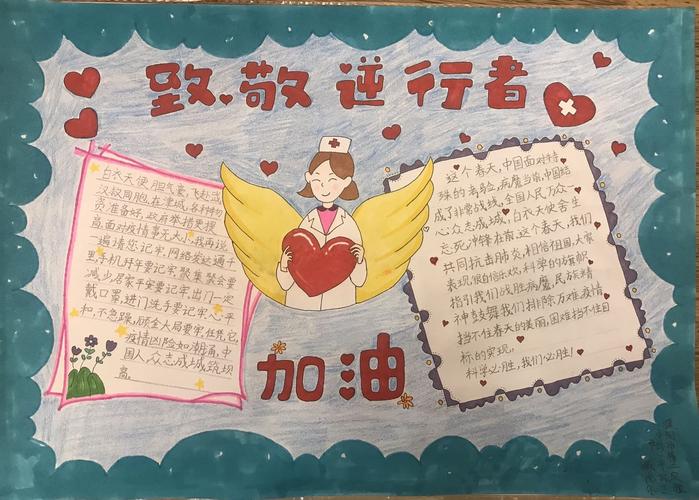 致敬逆行者
白衣天使胆气豪,飞赴武
汉救同胞,在重城,各种物
资准备好,政府举措更程
高,面对疫情莫大小,我再说
遍请您记牢,网络发达通千
里,手机拜年要记牢,聚集聚会要
减少,居家平安要记牢,出门一定
戴口罩,进门洗手要记牢,心平
和,不急躁,顾全大局要牢,任凭它,
疫情凶险如潮涌,中
国人众志成城,筑坝
高。
这个春天,中国面对特
殊的考验,病魔当前,中国结
成了非常战线,全国人民万众一
心众志成城,白衣天使舍生
忘死冲锋在前,这个春天,我们
共同抗击肺炎,相信祖国,大家
表现很自信乐观,科学的旗帜
指引我们战胜病魔,民族精
神鼓舞我们排除万难,疫情
挡不住春天的美丽,困难挡不住目
标的实现。
科学必胜,我们必胜!
加油